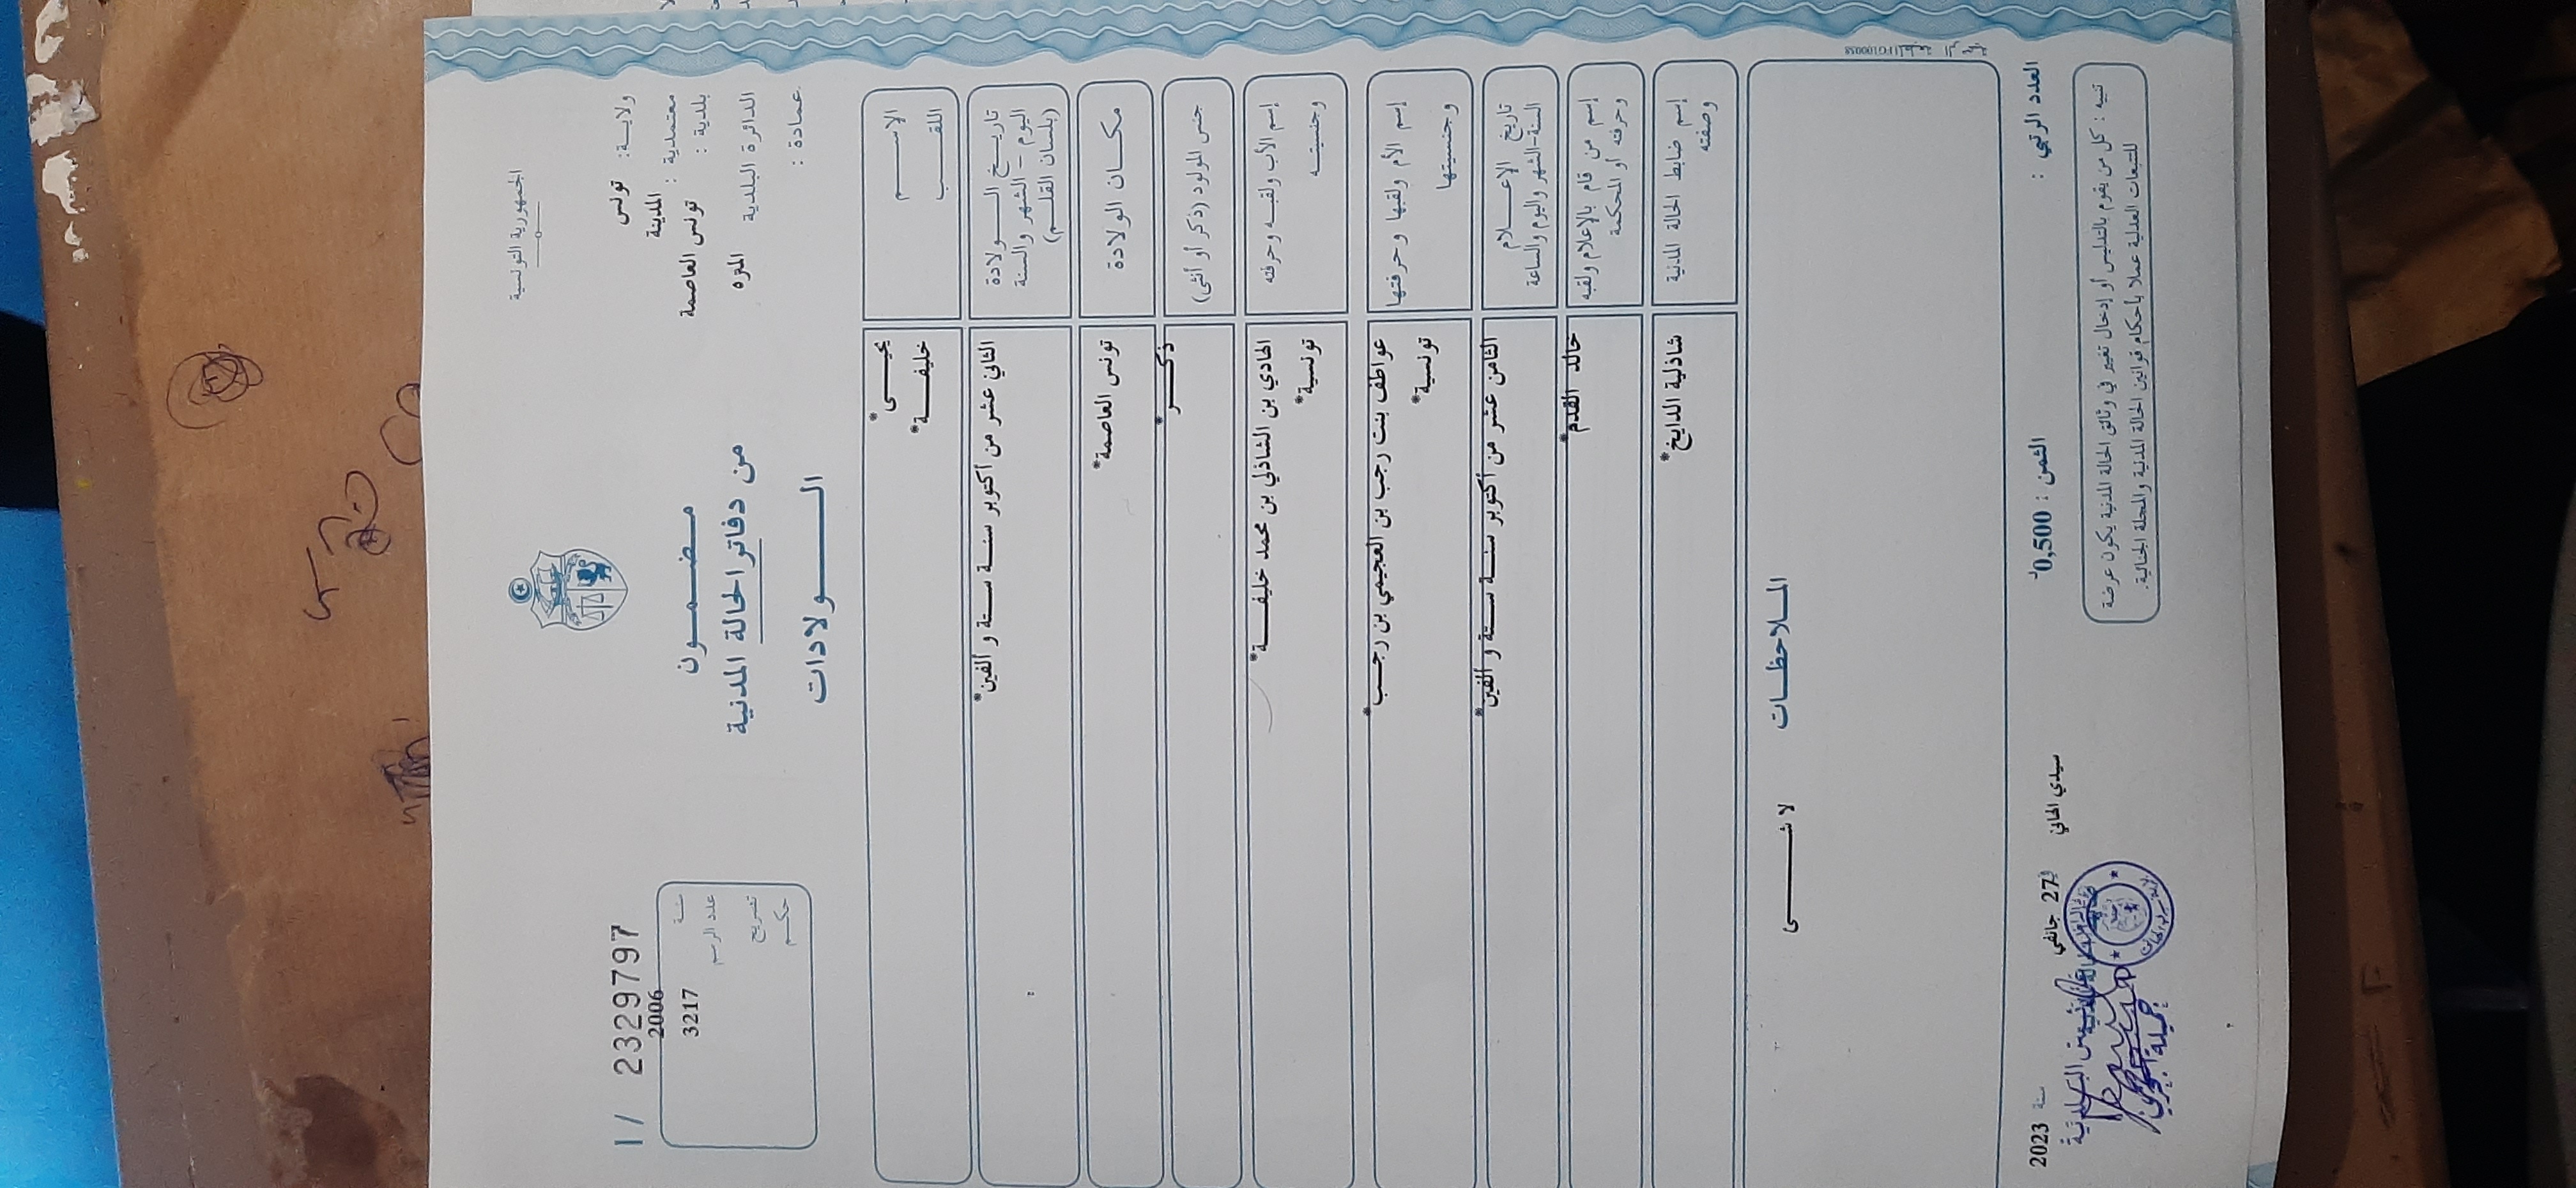 الجمهورية التونسية
1/ 2329797
ولاية: تونس
معتمدية : المدينة
بلدية : تونس العاصمة
الدائرة البلدية المنزه
عمادة :
سنة 2006
عدد الرسم 3217
تصريح
حكم
مضمون
من دفاتر الحالة المدنية
الولادات
الاسم يحيى*
اللقب خليفة*
تاريخ الولادة
اليوم - الشهر والسنة
(بلسان القلم)
الثاني عشر من أكتوبر سنة ستة و الفين*
مكان الولادة
تونس العاصمة*
جنس المولود (ذكر أو أنثى)
ذكر*
إسم الأب ولقبه وحرفته
وجنسيته
الهادي بن الشاذلي بن محمد خليفة*
تونسية*
إسم الأم ولقبها وحرفتها
وجنسيتها
عواطف بنت رجب بن العجيمي بن رجب*
تونسية*
تاريخ الإعلام
السنة-الشهر واليوم والساعة
الثامن عشر من أكتوبر سنة ستة و الفين*
إسم من قام بالإعلام ولقبه
وحرفته أو المحكمة
خالد القدم*
إسم ضابط الحالة المدنية
وصفته
شاذلية الدايخ*
الملاحظات
لا شى
العدد الرتبي :
الثمن : 0,500د
سيدي الهاني
في 27 جانفي سنة 2023
تنبيه : كل من يقوم بالتدليس أو إدخال تغيير في وثائق الحالة المدنية يكون عرضة
للتتبعات العدلية عملا بأحكام قوانين الحالة المدنية والمجلة الجنائية.